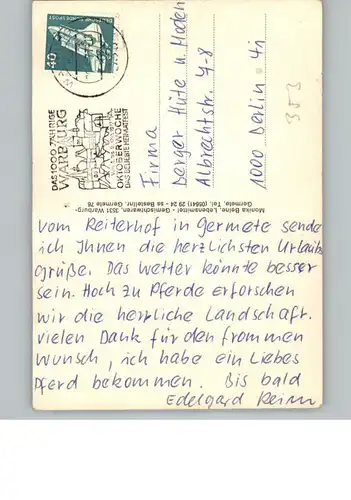 DEUTSCHE BUNDESPOST
40
DAS 1000 JÄHRIGE
WARBURG
OKTOBERWOCHE
DAS BELIEBTE HEIMATFEST
Firma
Berger Hüte u. Moden
Albrechtstr. 7-8
1000 Berlin 41
353
Monika Beine, Lebensmittel - Gemischwaren, 3531 Warburg-
Germete, Tel. (05641) 29 24 - ss Bestellnr. Germete 76
vom Reiterhof in Germete sende
ich Ihnen die herzlichsten Urlaubs
grüße. Das Wetter könnte besser
sein. Hoch zu Pferde erforschen
wir die herrliche Landschaft.
Vielen Dank für den frommen
Wunsch, ich habe ein liebes
Pferd bekommen. Bis bald
Edelgard